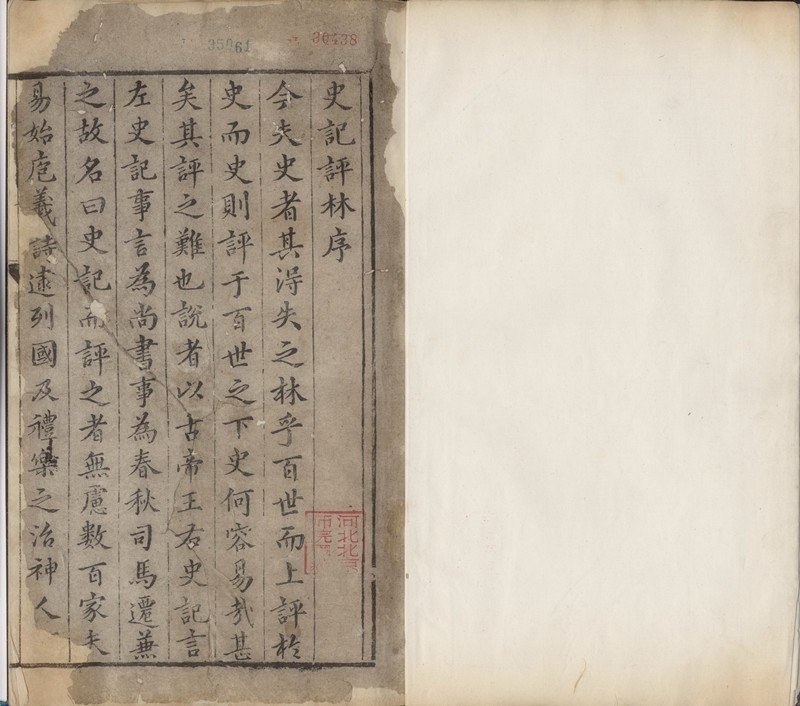 35061
30438
史記評林序
今夫史者其淂失之林乎百世而上評於
史而史則評于百世之下史何容易哉甚
矣其評之難也說者以古帝王右史記言
左史記事言為尚書事為春秋司馬遷兼
之故名曰史記而評之者無慮數百家夫
易始庖羲詩逮列國及禮樂之治神人
河北北